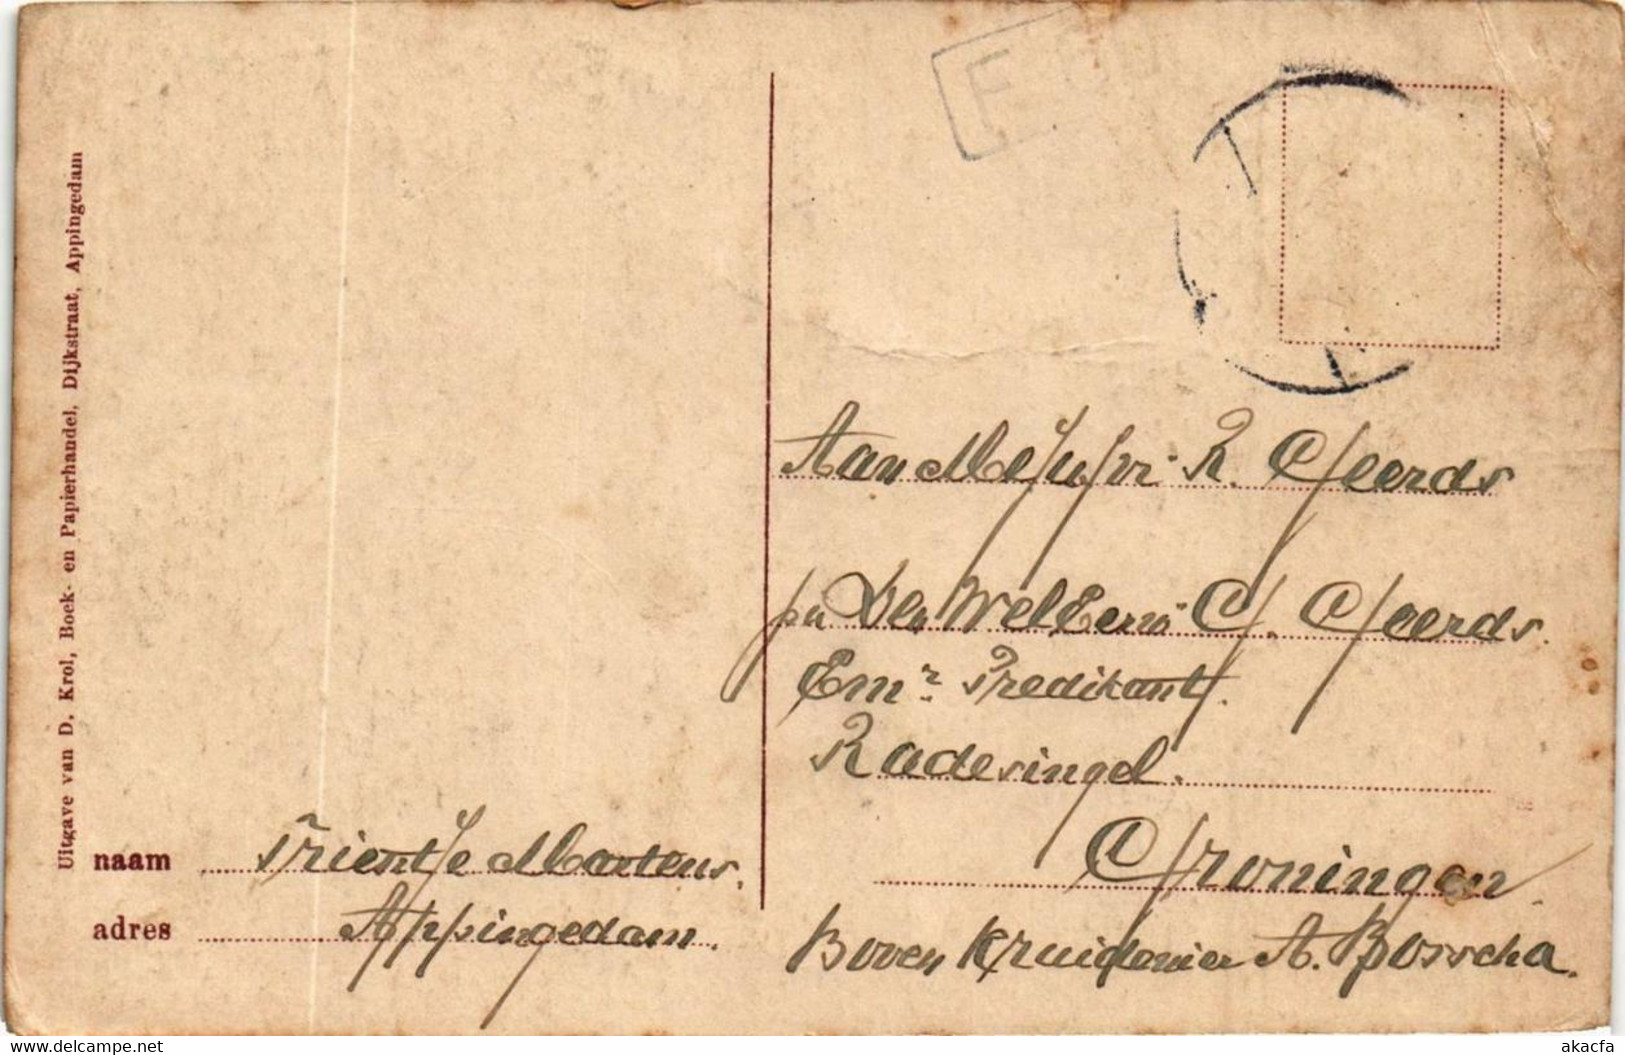 Uitgave van D. Krol, Boek- en Papierhandel, Dijkstraat, Appingedam
F
Aan Mejufvr. R. Geerds
p/a Den WelEerw. G. Geerds.
Emr. Predikant.
Radesingel.
Groningen
Boven Kruidenier A. Bosscha.
naam Trientje Martens.
adres Appingedam.
www.delcampe.net
akacfa